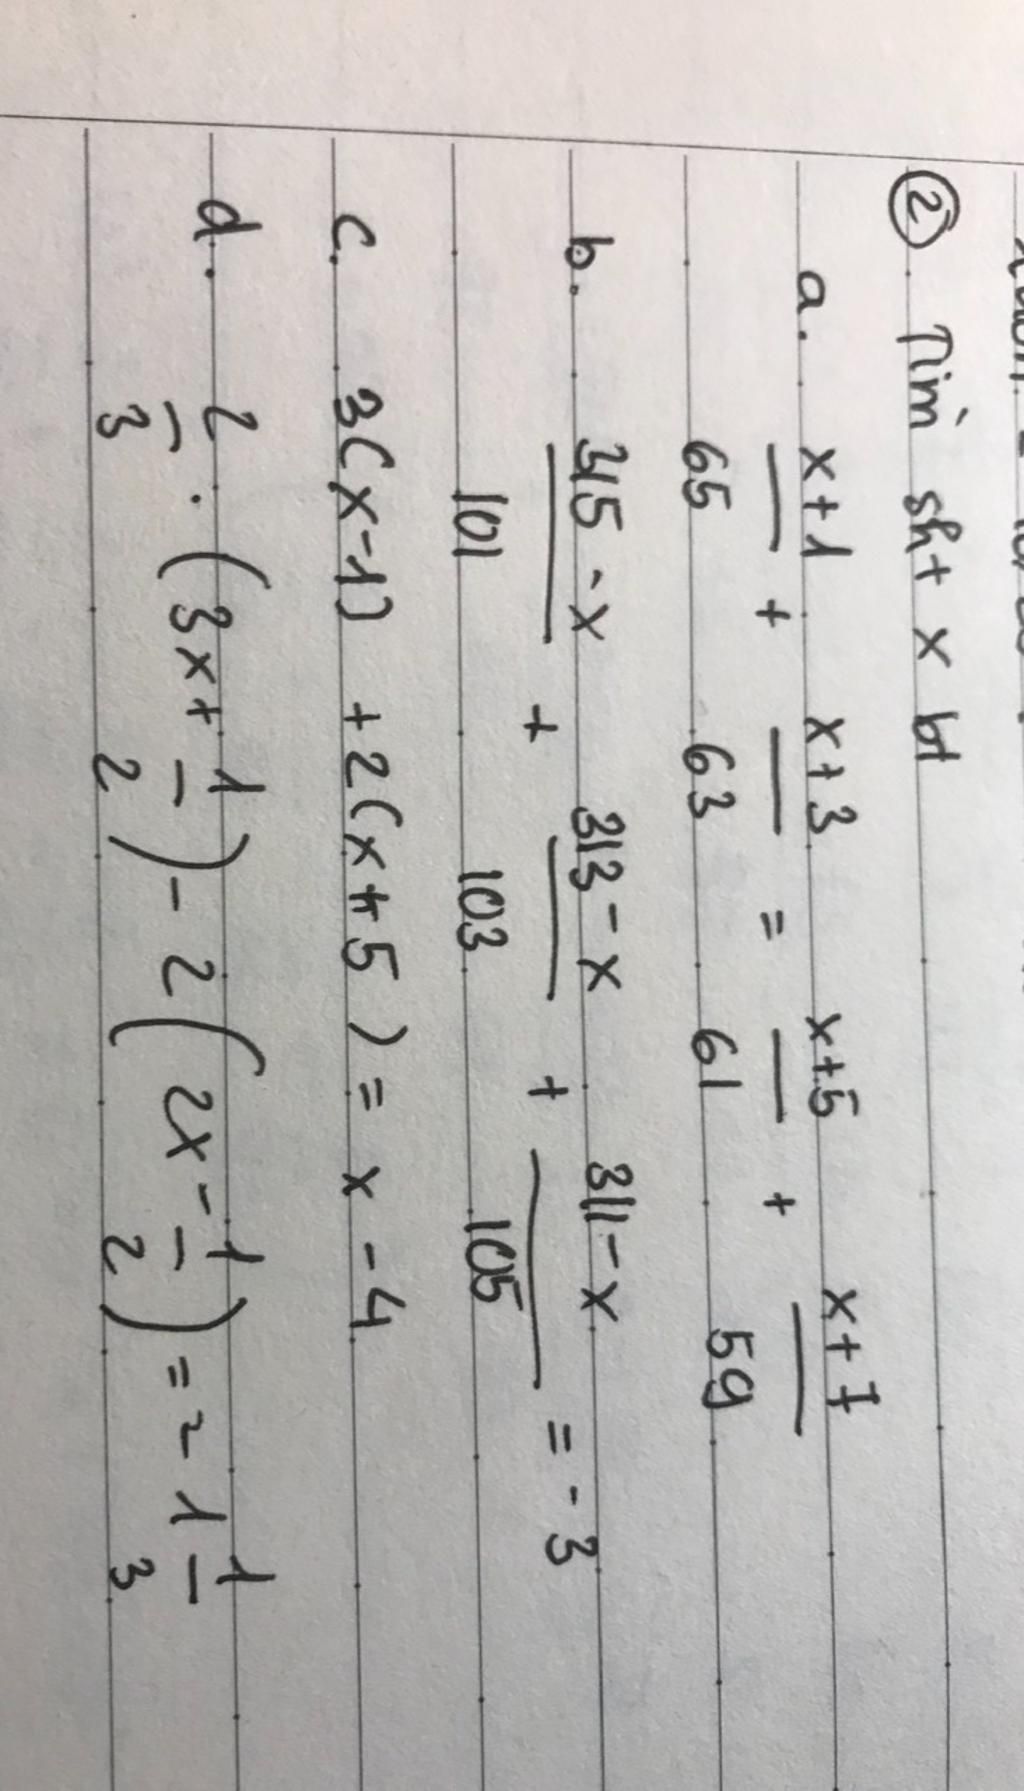 ② Tìm sht x bt
a. x+1/65 + x+3/63 = x+5/61 + x+7/59
b. 315-x/101 + 313-x/103 + 311-x/105 = -3
c. 3(x-1) +2(x+5) = x-4
d. 2/3 . (3x+1/2) - 2(2x-1/2) = -1 1/3